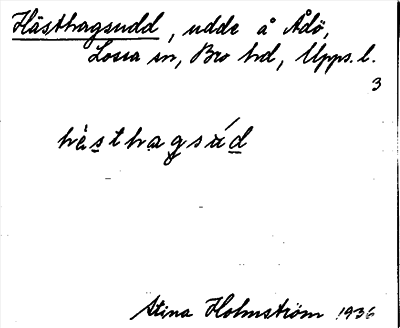 Hästhagsudd, udde å Ådö,
Lossa sn, Bro hd, Upps. l.
3
hästhagsúd
Stina Holmström 1936